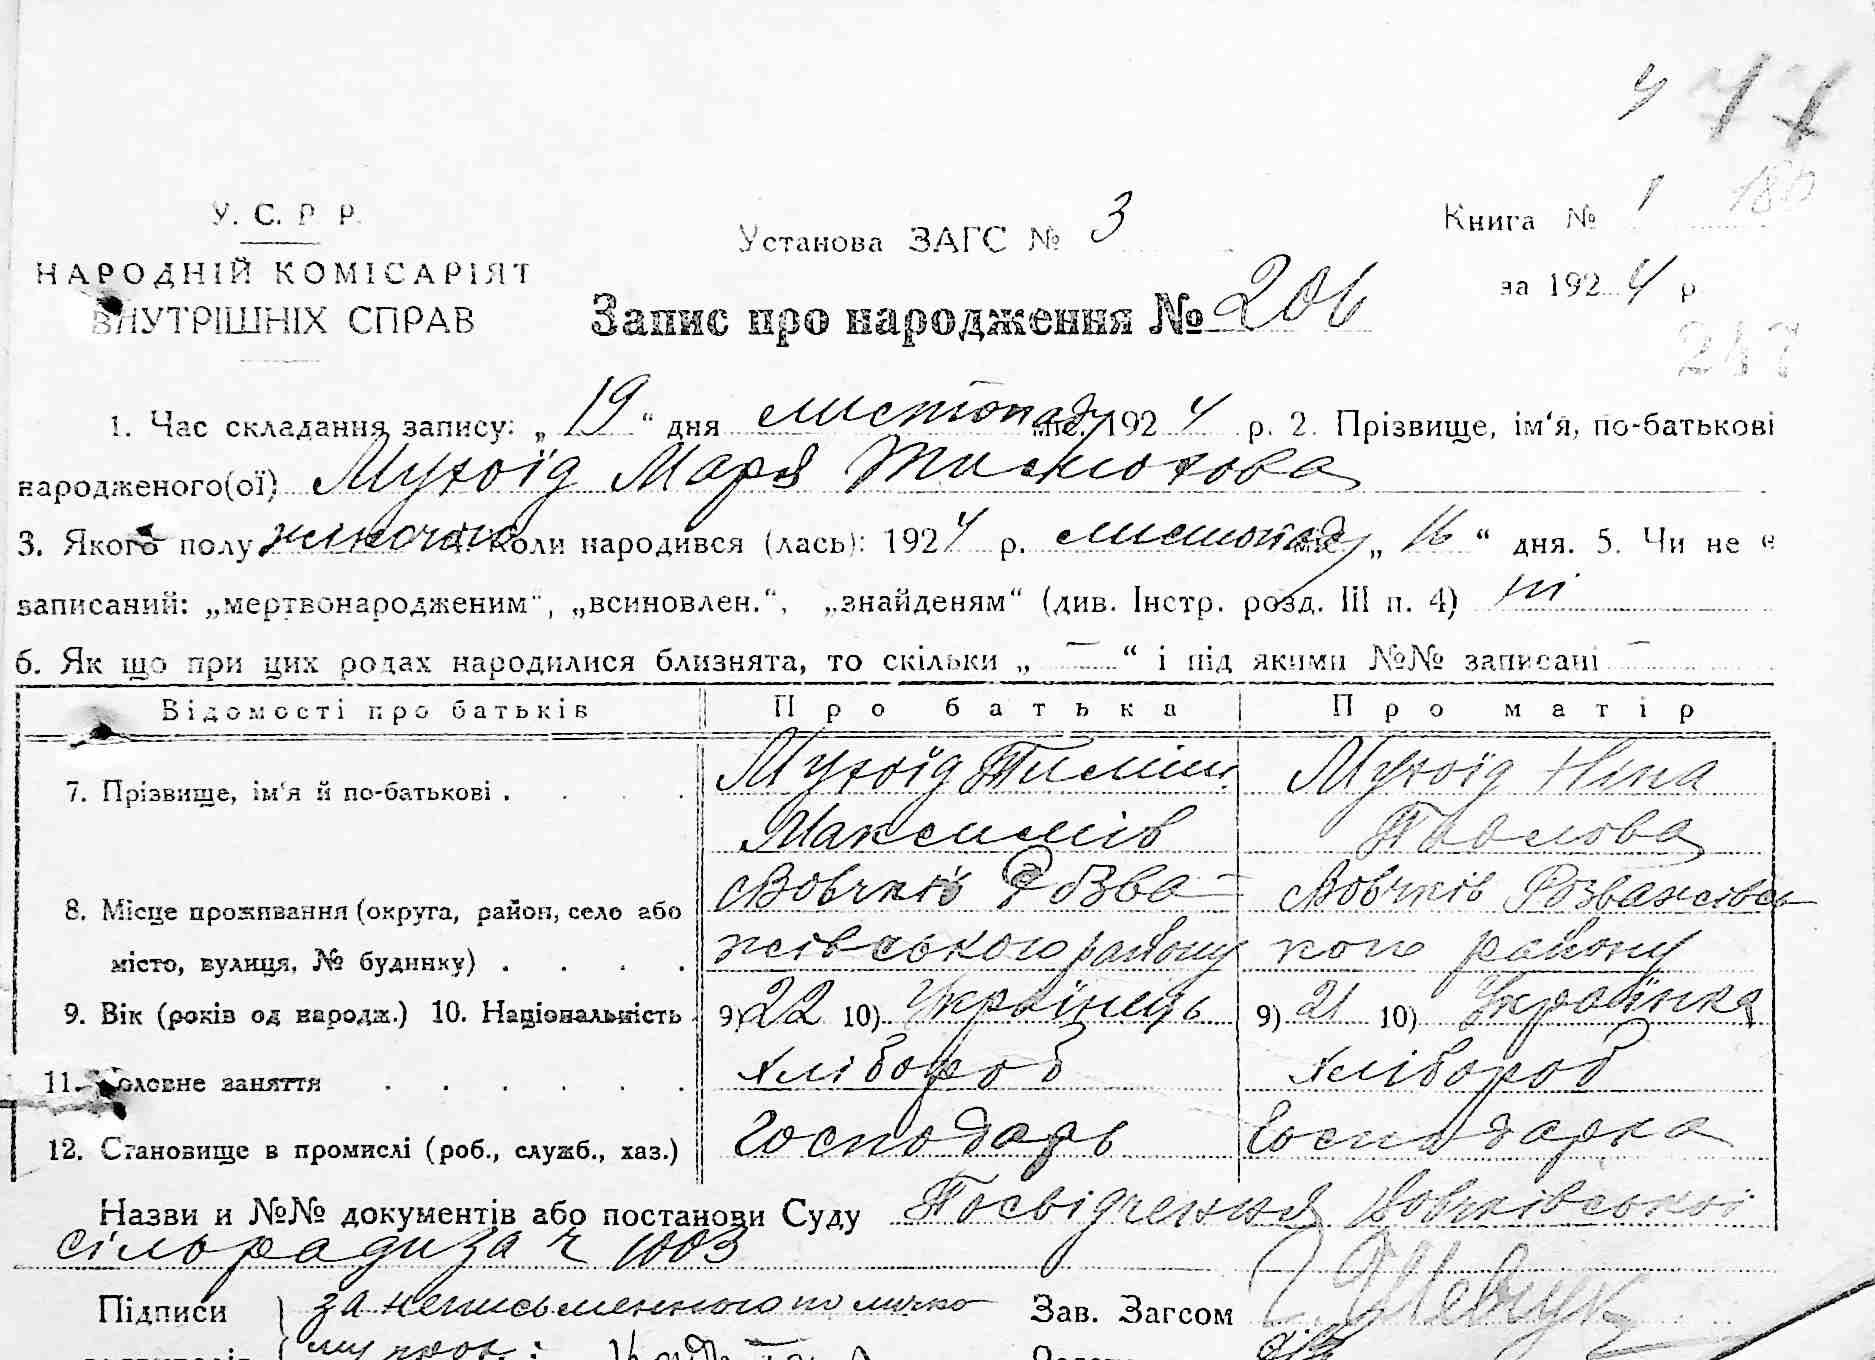 4 77
У. С. Р. Р.
Установа ЗАГС № 3
Книга № 1 180
НАРОДНІЙ КОМІСАРІЯТ
за 1924 р.
ВНУТРІШНІХ СПРАВ
Запис про народження № 206
247
1. Час складання запису: „19“ дня листопаду міс. 1924 р. 2. Прізвище, ім‘я, по-батькові
народженого(ої) Мухоїд Маря Тимохова
3. Якого полу жіночого 4. Коли народився (лась): 1924 р. листопаду міс. „16“ дня. 5. Чи не є
записаний: „мертвонародженим“, „всиновлен.“, „знайденям“ (див. Інстр. розд. III п. 4) ні
6. Як що при цих родах народилися близнята, то скільки „—“ і під якими №№ записані —
Відомості про батьків Про батька Про матір
7. Прізвище, ім‘я й по-батькові . . . . Мухоїд Тиміш Мухоїд Ніна
Максимів Павлова
8. Місце проживання (округа, район, село або Вовчків Розва- Вовчків Розважівсь
місто, вулиця, № будинку) . . . . жівського району кого району
9. Вік (років од народж.) 10. Національність 9) 22 10) Українець 9) 21 10) Українка
11. Головне заняття . . . . . . хлібороб хлібороб
12. Становище в промислі (роб., служб., хаз.) Господарь Господарка
Назви и №№ документів або постанови Суду Посвідчення Вовчківської
сільради за ч 1003
Підписи за неписьменного по личко Зав. Загсом Шевчук
му прох.: